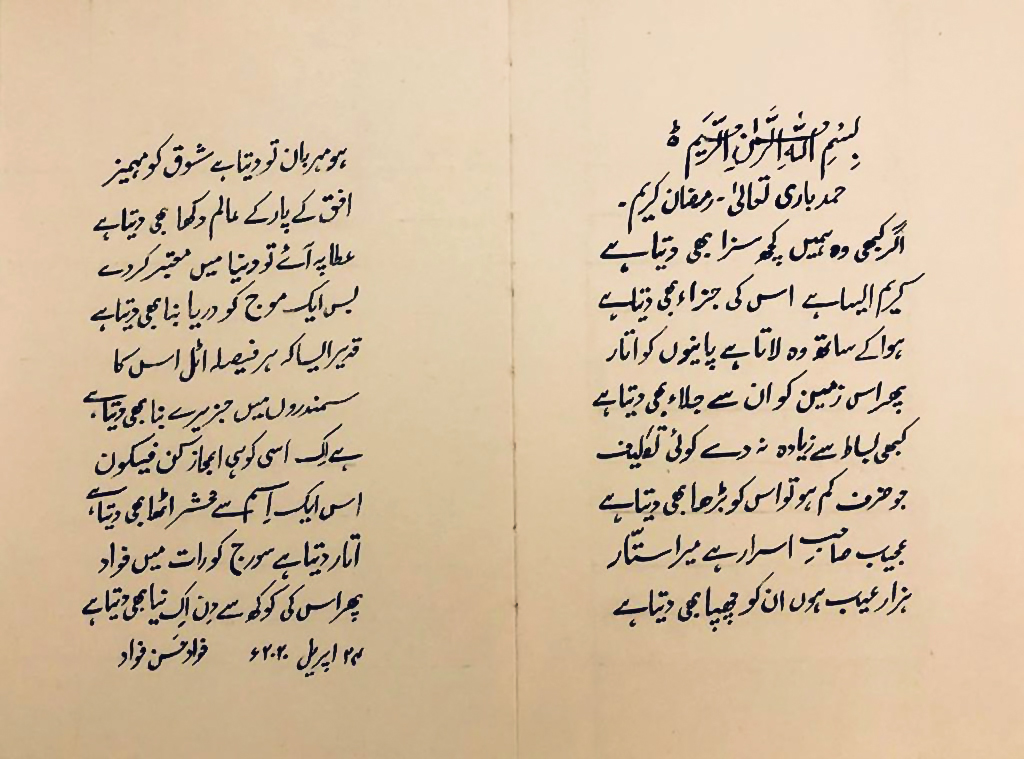 بِسْمِ اللّٰهِ الرَّحْمٰنِ الرَّحِيْمِ ۵
حمد باری تعالیٰ ۔ رمضان کریم ۔
اگر کبھی وہ ہمیں کچھ سزا بھی دیتا ہے
کریم ایسا ہے اس کی جزاء بھی دیتا ہے
ہوا کے ساتھ وہ لاتا ہے پانیوں کو اتار
پھر اس زمین کو ان سے جلاء بھی دیتا ہے
کبھی بساط سے زیادہ نہ دے کوئی تکلیف
جو ظرف کم ہو تو اس کو بڑھا بھی دیتا ہے
عجیب صاحبِ اسرار ہے میرا ستّار
ہزار عیب ہوں ان کو چھپا بھی دیتا ہے
ہو مہربان تو دیتا ہے شوق کو مہمیز
افق کے پار کے عالم دکھا بھی دیتا ہے
عطا پہ آئے تو دنیا میں معتبر کر دے
بس ایک موج کو دریا بنا بھی دیتا ہے
قدیر ایسا کہ ہر فیصلہ اٹل اس کا
سمندروں میں جزیرے بنا بھی دیتا ہے
ہے اِک اسی کو ہی اعجاز کن فیکون
اس ایک اِسم سے محشر اٹھا بھی دیتا ہے
اتار دیتا ہے سورج کو رات میں فواد
پھر اس کی کوکھ سے دِن اِک نیا بھی دیتا ہے
۲۴ اپریل ۲۰۲۰ء فواد حَسَن فواد